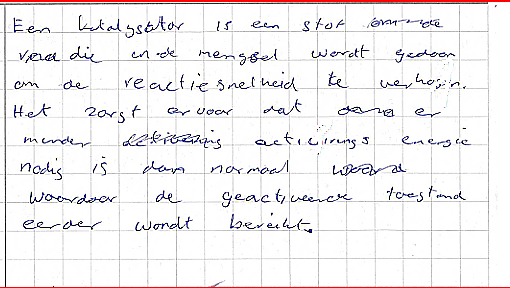 Een katalysator is een stof
die in de mengsel wordt gedaan
om de reactiesnelheid te verhogen.
Het zorgt ervoor dat er
minder activirings energie
nodig is dan normaal
waardoor de geactiveerde toestand
eerder wordt bereikt.